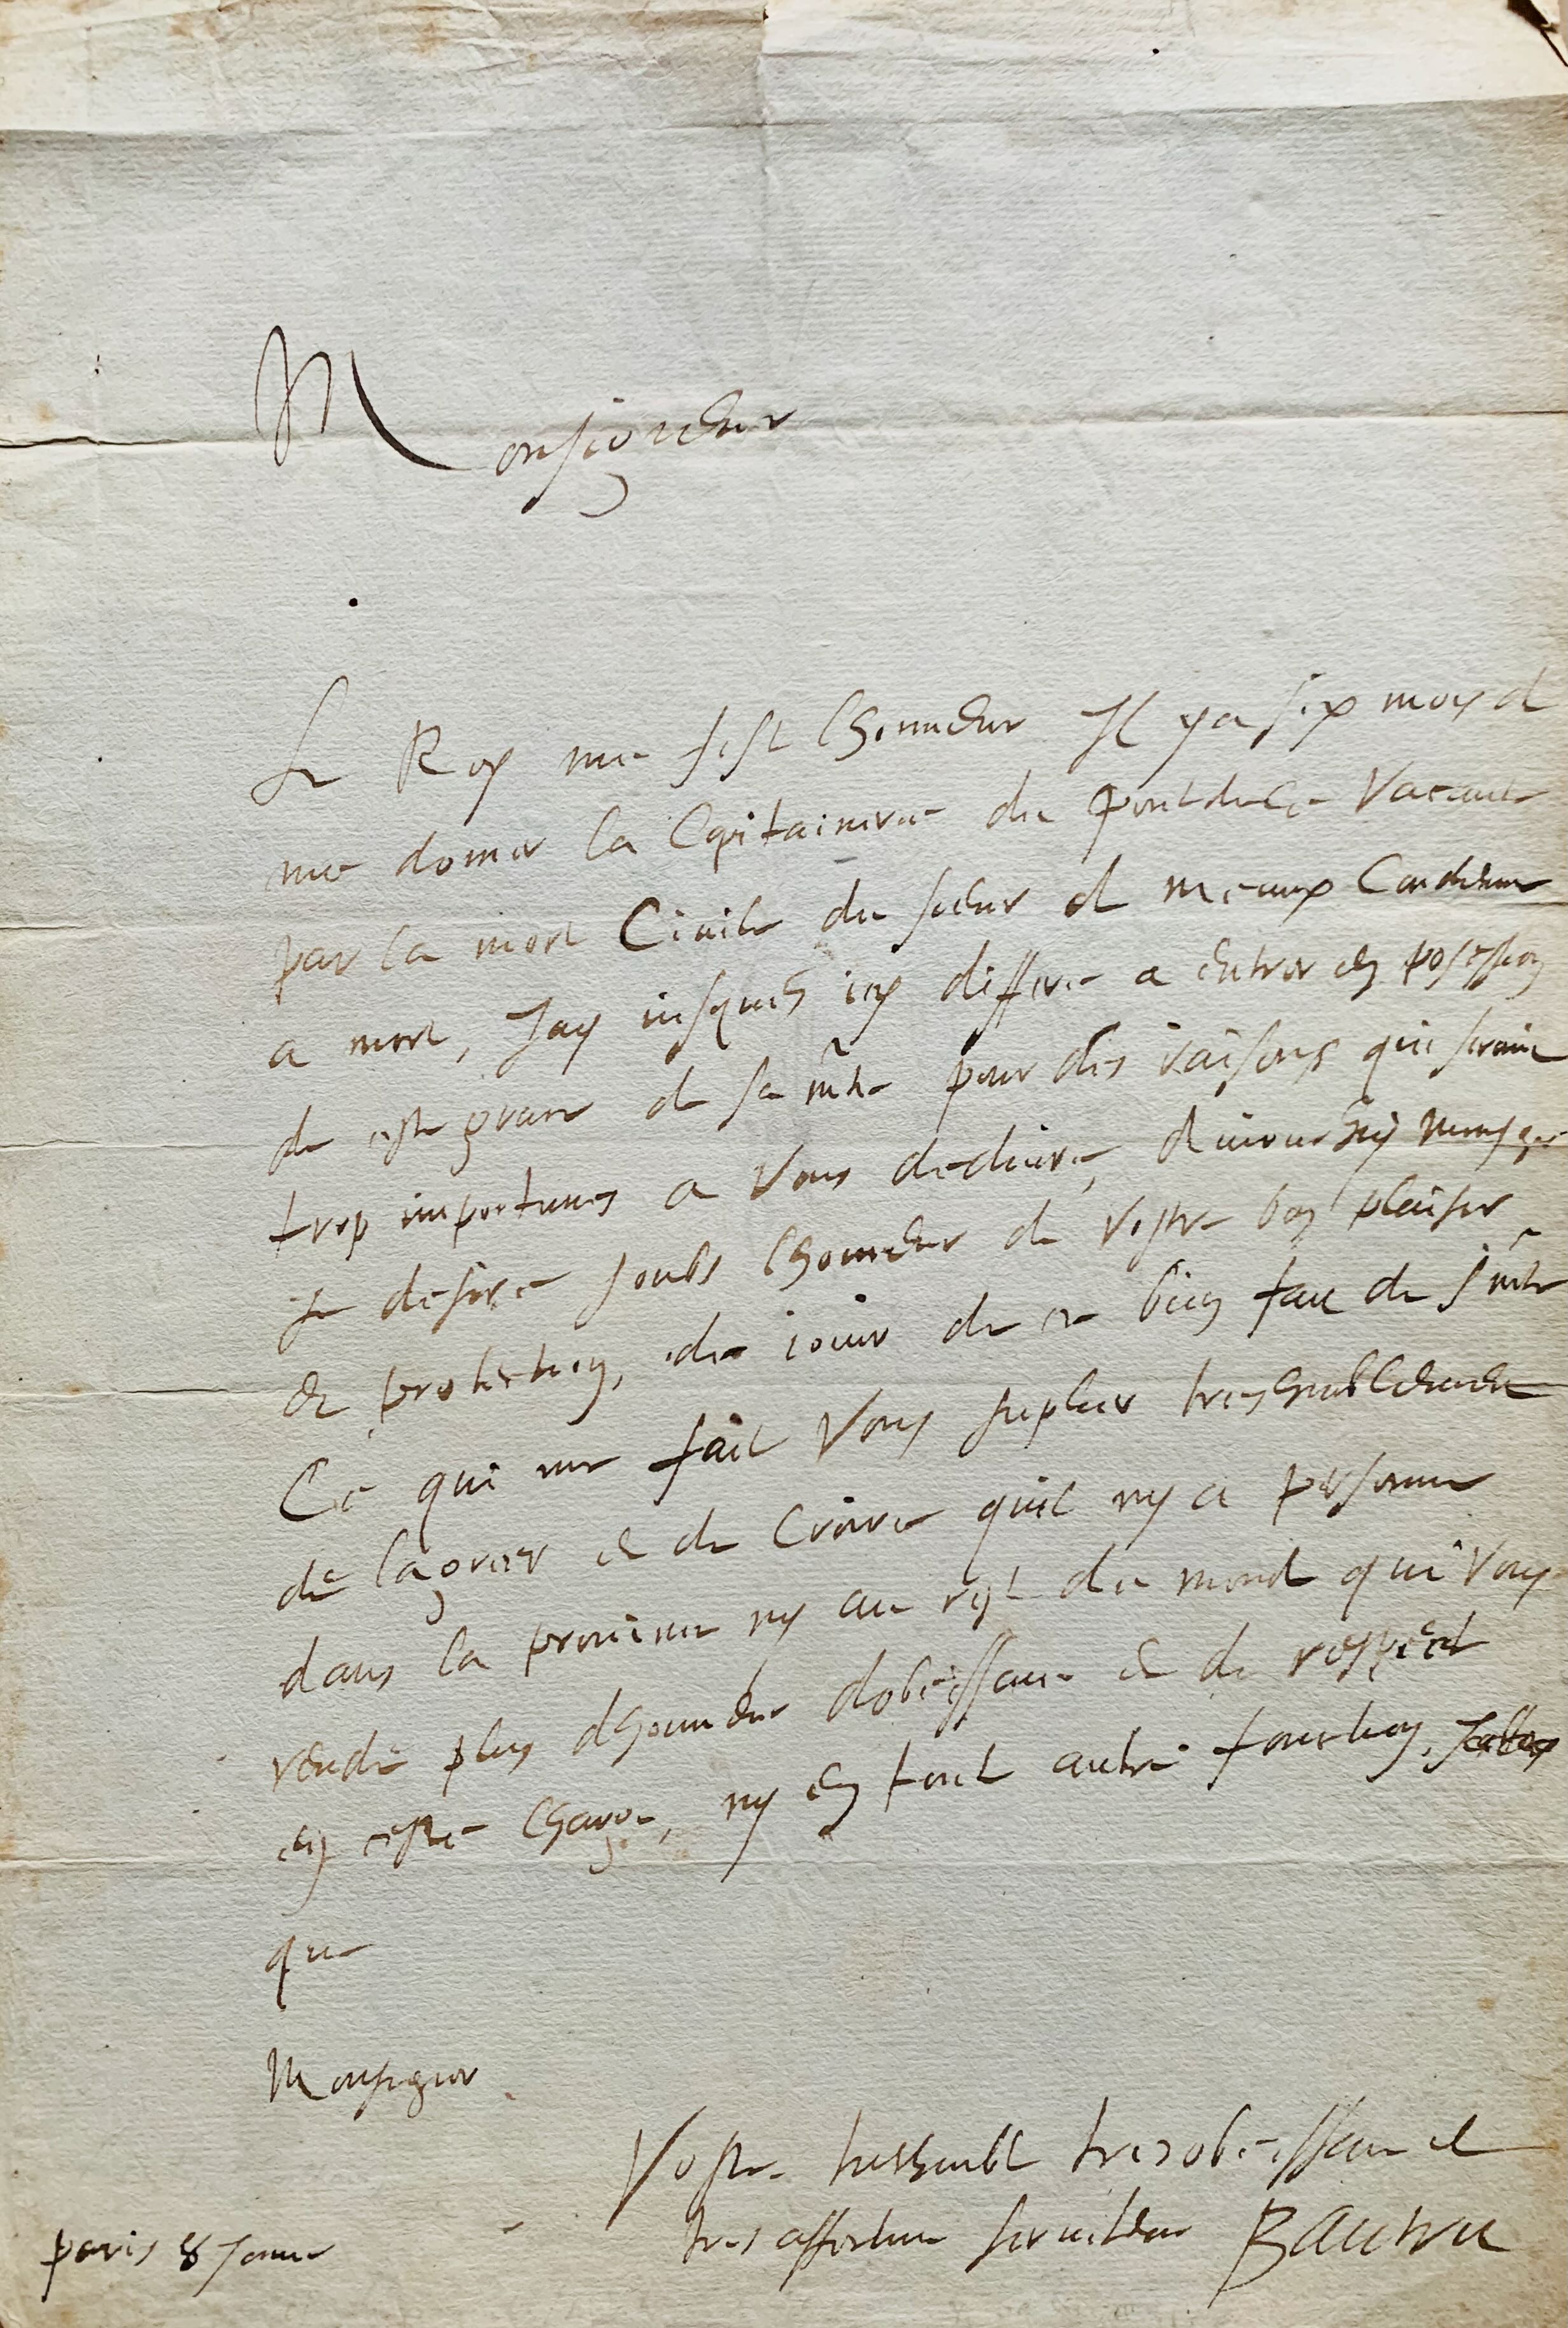 Monseigneur
Le Roy me fist lhonneur Il ya six moys de
me donner la Capitainerie du pont de Ce Vacante
par la mort Civile du sieur de Condemne
a mort, Jay iusques icy differe a entrer en posession
de ceste grace de sa mte pour des raisons qui seroint
trop importunes a Vous deduire,
Je desire soubs lhonneur de vostre bon plaisir
et protection, de iouir de ce bien fait de sa mte
Ce qui me fait Vous suplier treshumblement
de lagreer et de Croire quil ny a personne
dans la province ny au reste du monde qui Vous
rende plus dhonneur dobeissance et de respect
en ceste Charge, ny en tout autre fonction,
que
Monseigneur
Vostre treshumble tresobeissant et
tres affectione serviteur Bautru
paris 8 Janvie